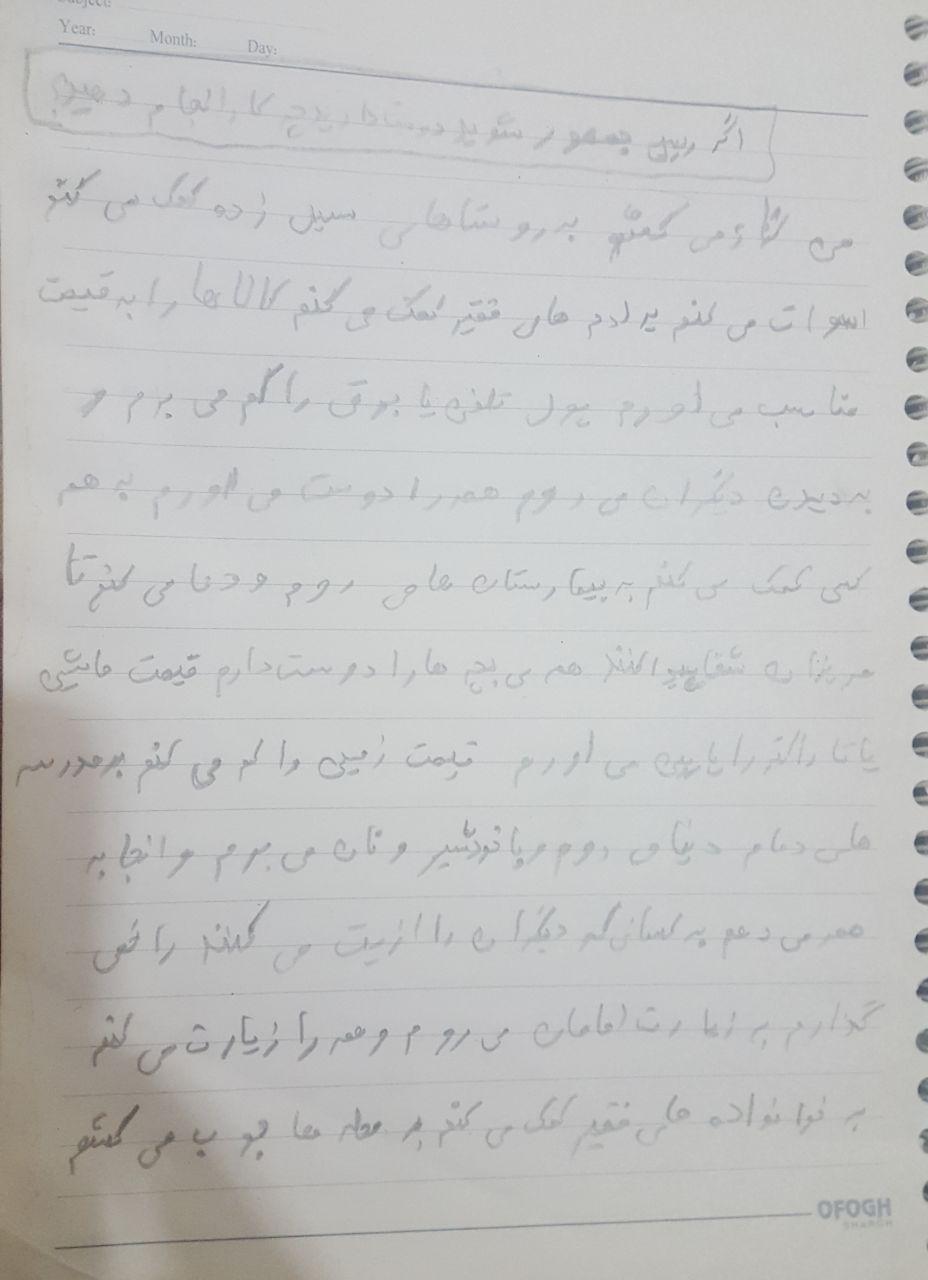 Subject:
Year: Month: Day:
اگر رییس جمهور شوید دوست دارید چه کار انجام دهید؟
می به روستاهای سیل زده کمک می کنم
می کنم به ادم های فقیر کمک می کنم کالا ها را به قیمت
مناسب می اورم پول تلفن یا برق را کم می برم و
به دیدن دیگران می روم همه را دوست می اورم به هم
کسی کمک می کنم به بیمارستان ها می روم و دعا می کنم تا
مریزان شفا پیدا کنند هم ی بچه ها را دوست دارم قیمت ماشین
یا را پایین می اورم قیمت زمین را کم می کنم به مدرسه
های تمام دنیا می روم و با خود شیر و نان می برم و انجا به
همه می دهم به کسانی که دیگران را ازیت می کنند را نمی
گذارم به زیارت امامان می روم و همه را زیارت می کنم
به خوانواده های فقیر کمک می کنم به محله ها می
OFOGH
SHARGH